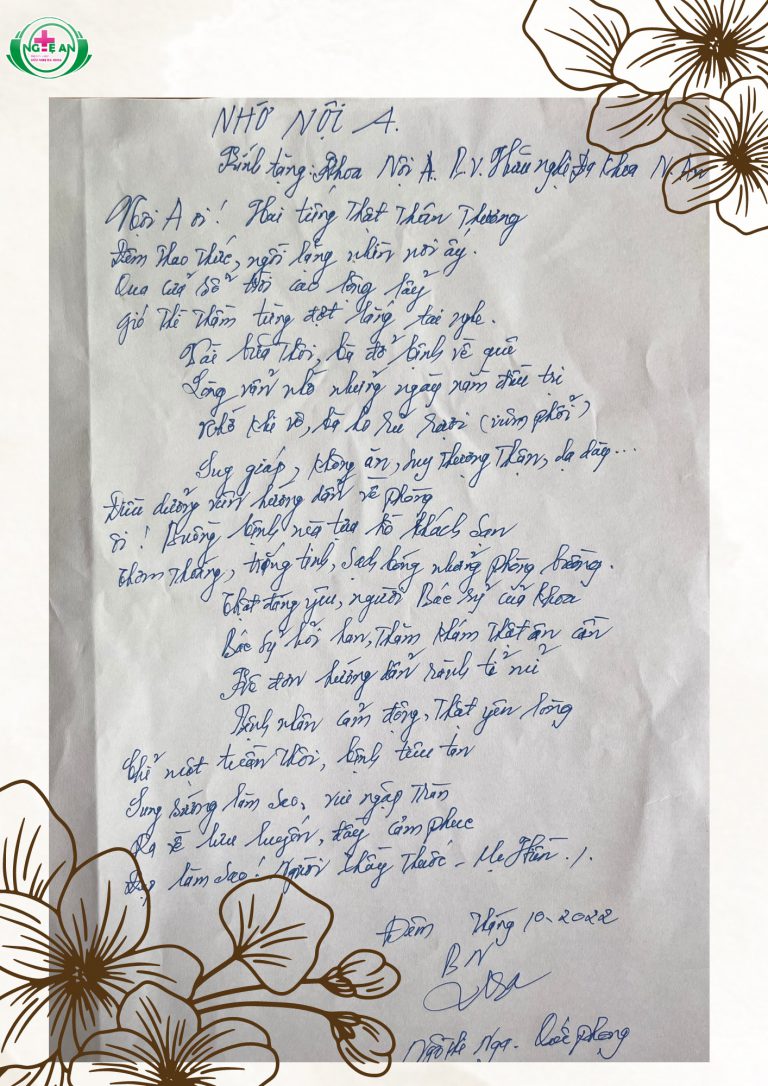 NGHỆ AN
NHỚ NỘI A.
Kính tặng: Khoa Nội A. B.V. Hữu nghị Đa Khoa N. An
Nội A ơi! Hai tiếng thật thân thương
Đêm thao thức, ngồi lặng nhìn nơi ấy.
Qua cửa sổ trời cao lồng lẫy
Gió thì thầm từng đợt lắng tai nghe.
thôi, bà đỡ bệnh về quê
Lòng vẫn nhớ những ngày nằm điều trị
Nhớ khi vô, bà ho rũ rượi (viêm phổi)
Suy giáp, không ăn, suy thượng thận, dạ dày...
Điều dưỡng viên hướng dẫn về phòng
Ôi! Buồng bệnh mà tựa hồ khách sạn
Thơm thoáng, trắng tinh, sạch bóng những phòng buồng.
Thật đáng yêu, người Bác sỹ của khoa
Bác sỹ hỏi han, thăm khám thật ân cần
Kê đơn hướng dẫn rành tỉ mỉ
Bệnh nhân cảm động, thật yên lòng
Chỉ một tuần thôi, bệnh tiêu tan
Sung sướng làm sao, vui ngập tràn
Ra về lưu luyến, đầy cảm phục
Đẹp làm sao! Người thầy thuốc - Mẹ Hiền./.
Đêm tháng 10-2022
BN
Nga
Ngô Thị Nga - Quốc phòng